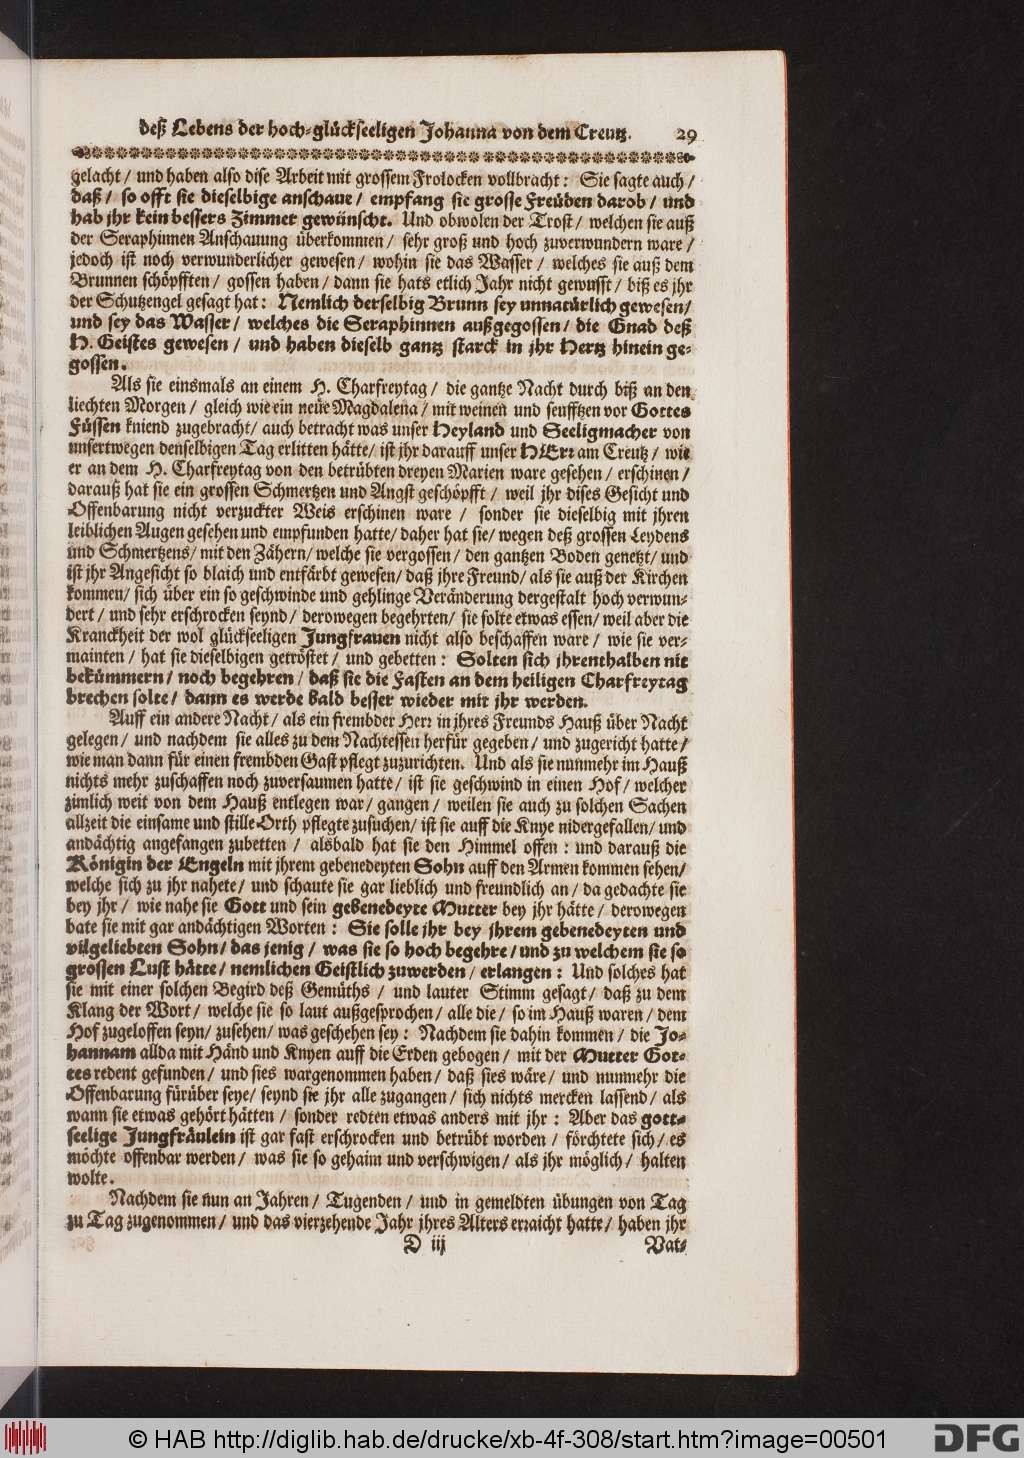 deß Lebens der hoch-glückseeligen Johanna von dem Creutz. 29
gelacht / und haben also dise Arbeit mit grossem Frolocken vollbracht: Sie sagte auch /
daß / so offt sie dieselbige anschaue / empfang sie grosse Freüden darob / und
hab jhr kein bessers Zimmer gewünscht. Und obwolen der Trost / welchen sie auß
der Seraphinnen Anschauung überkommen / sehr groß und hoch zuverwundern ware /
jedoch ist noch verwunderlicher gewesen / wohin sie das Wasser / welches sie auß dem
Brunnen schöpfften / gossen haben / dann sie hats etlich Jahr nicht gewusst / biß es jhr
der Schutzengel gesagt hat: Nemlich derselbig Brunn sey unnatürlich gewesen /
und sey das Wasser / welches die Seraphinnen außgegossen / die Gnad deß
H. Geistes gewesen / und haben dieselb gantz starck in jhr Hertz hinein ge-
gossen.
Als sie einsmals an einem H. Charfreytag / die gantze Nacht durch biß an den
liechten Morgen / gleich wie ein neüe Magdalena / mit weinen und seufftzen vor Gottes
Füssen kniend zugebracht / auch betracht was unser Heyland und Seeligmacher von
unsertwegen denselbigen Tag erlitten hätte / ist jhr darauff unser HErr am Creutz / wie
er an dem H. Charfreytag von den betrübten dreyen Marien ware gesehen / erschinen /
darauß hat sie ein grossen Schmertzen und Angst geschöpfft / weil jhr dises Gesicht und
Offenbarung nicht verzuckter Weis erschinen ware / sonder sie dieselbig mit jhren
leiblichen Augen gesehen und empfunden hatte / daher hat sie / wegen deß grossen Leydens
und Schmertzens / mit den Zähern / welche sie vergossen / den gantzen Boden genetzt / und
ist jhr Angesicht so blaich und entfärbt gewesen / daß jhre Freund / als sie auß der Kirchen
kommen / sich über ein so geschwinde und gehlinge Veränderung dergestalt hoch verwun-
dert / und sehr erschrocken seynd / derowegen begehrten / sie solte etwas essen / weil aber die
Kranckheit der wol glückseeligen Jungfrauen nicht also beschaffen ware / wie sie ver-
mainten / hat sie dieselbigen getröstet / und gebetten: Solten sich jhrenthalben nit
bekümmern / noch begehren / daß sie die Fasten an dem heiligen Charfreytag
brechen solte / dann es werde bald besser wieder mit jhr werden.
Auff ein andere Nacht / als ein frembder Herr in jhres Freunds Hauß über Nacht
gelegen / und nachdem sie alles zu dem Nachtessen herfür gegeben / und zugericht hatte /
wie man dann für einen frembden Gast pflegt zuzurichten. Und als sie nunmehr im Hauß
nichts mehr zuschaffen noch zuversaumen hatte / ist sie geschwind in einen Hof / welcher
zimlich weit von dem Hauß entlegen war / gangen / weilen sie auch zu solchen Sachen
allzeit die einsame und stille Orth pflegte zusuchen / ist sie auff die Knye nidergefallen / und
andächtig angefangen zubetten / alsbald hat sie den Himmel offen: und darauß die
Königin der Engeln mit jhrem gebenedeyten Sohn auff den Armen kommen sehen /
welche sich zu jhr nahete / und schaute sie gar lieblich und freundlich an / da gedachte sie
bey jhr / wie nahe sie Gott und sein gebenedeyte Mutter bey jhr hätte / derowegen
bate sie mit gar andächtigen Worten: Sie solle jhr bey jhrem gebenedeyten und
vilgeliebten Sohn / das jenig / was sie so hoch begehre / und zu welchem sie so
grossen Lust hätte / nemlichen Geistlich zuwerden / erlangen: Und solches hat
sie mit einer solchen Begird deß Gemüths / und lauter Stimm gesagt / daß zu dem
Klang der Wort / welche sie so laut außgesprochen / alle die / so im Hauß waren / dem
Hof zugeloffen seyn / zusehen / was geschehen sey: Nachdem sie dahin kommen / die Jo-
hannam allda mit Händ und Knyen auff die Erden gebogen / mit der Mutter Got-
tes redent gefunden / und sies wargenommen haben / daß sies wäre / und nunmehr die
Offenbarung fürüber seye / seynd sie jhr alle zugangen / sich nichts mercken lassend / als
wann sie etwas gehört hätten / sonder redten etwas anders mit jhr: Aber das gott-
seelige Jungfräulein ist gar fast erschrocken und betrübt worden / förchtete sich / es
möchte offenbar werden / was sie so gehaim und verschwigen / als jhr möglich / halten
wolte.
Nachdem sie nun an Jahren / Tugenden / und in gemeldten übungen von Tag
zu Tag zugenommen / und das vierzehende Jahr jhres Alters erraicht hatte / haben jhr
D iij Vat-
© HAB http://diglib.hab.de/drucke/xb-4f-308/start.htm?image=00501 DFG